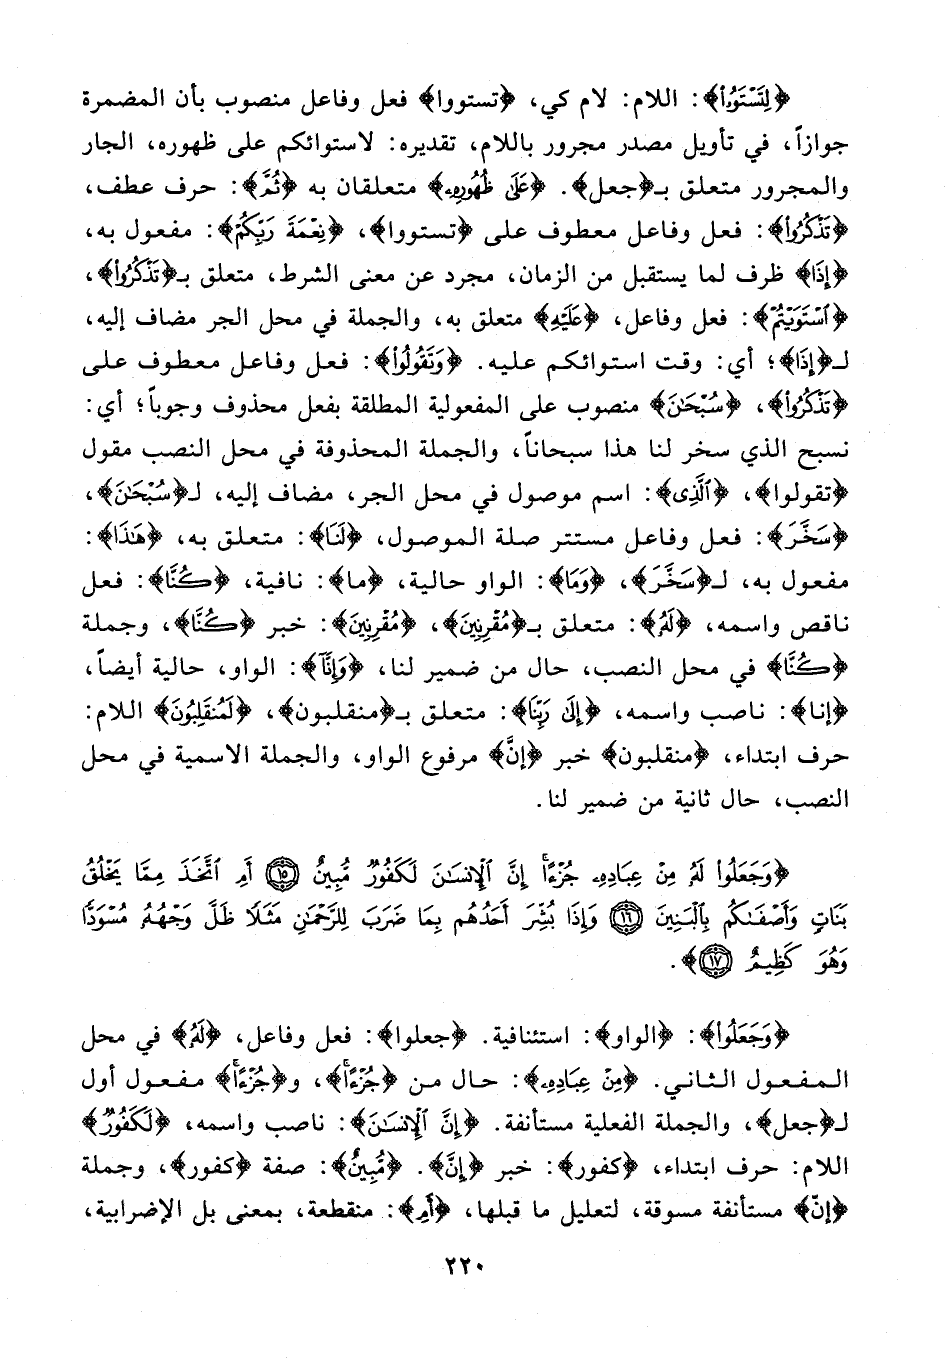 ﴿لِتَسْتَوُۥا﴾: اللام: لام كي، ﴿تستووا﴾ فعل وفاعل منصوب بأن المضمرة
جوازاً، في تأويل مصدر مجرور باللام، تقديره: لاستوائكم على ظهوره، الجار
والمجرور متعلق بـ﴿جعل﴾. ﴿عَلَىٰ ظُهُورِهِۦ﴾ متعلقان به ﴿ثُمَّ﴾: حرف عطف،
﴿تَذْكُرُوا۟﴾: فعل وفاعل معطوف على ﴿تستووا﴾، ﴿نِعْمَةَ رَبِّكُمْ﴾: مفعول به،
﴿إِذَا﴾ ظرف لما يستقبل من الزمان، مجرد عن معنى الشرط، متعلق بـ﴿تَذْكُرُوا۟﴾،
﴿ٱسْتَوَيْتُمْ﴾: فعل وفاعل، ﴿عَلَيْهِ﴾ متعلق به، والجملة في محل الجر مضاف إليه،
لـ﴿إِذَا﴾؛ أي: وقت استوائكم عليه. ﴿وَتَقُولُوا۟﴾: فعل وفاعل معطوف على
﴿تَذْكُرُوا۟﴾، ﴿سُبْحَٰنَ﴾ منصوب على المفعولية المطلقة بفعل محذوف وجوباً؛ أي:
نسبح الذي سخر لنا هذا سبحاناً، والجملة المحذوفة في محل النصب مقول
﴿تقولوا﴾، ﴿ٱلَّذِى﴾: اسم موصول في محل الجر، مضاف إليه، لـ﴿سُبْحَٰنَ﴾،
﴿سَخَّرَ﴾: فعل وفاعل مستتر صلة الموصول، ﴿لَنَا﴾: متعلق به، ﴿هَٰذَا﴾:
مفعول به، لـ﴿سَخَّرَ﴾، ﴿وَمَا﴾: الواو حالية، ﴿ما﴾: نافية، ﴿كُنَّا﴾: فعل
ناقص واسمه، ﴿لَهُۥ﴾: متعلق بـ﴿مُقْرِنِينَ﴾، ﴿مُقْرِنِينَ﴾: خبر ﴿كُنَّا﴾، وجملة
﴿كُنَّا﴾ في محل النصب، حال من ضمير لنا، ﴿وَإِنَّآ﴾: الواو، حالية أيضاً،
﴿إنا﴾: ناصب واسمه، ﴿إِلَىٰ رَبِّنَا﴾: متعلق بـ﴿منقلبون﴾، ﴿لَمُنقَلِبُونَ﴾ اللام:
حرف ابتداء، ﴿منقلبون﴾ خبر ﴿إنَّ﴾ مرفوع الواو، والجملة الاسمية في محل
النصب، حال ثانية من ضمير لنا.
﴿وَجَعَلُوا۟ لَهُۥ مِنْ عِبَادِهِۦ جُزْءًا ۚ إِنَّ ٱلْإِنسَٰنَ لَكَفُورٌ مُّبِينٌ ١٥ أَمِ ٱتَّخَذَ مِمَّا يَخْلُقُ
بَنَاتٍ وَأَصْفَىٰكُم بِٱلْبَنِينَ ١٦ وَإِذَا بُشِّرَ أَحَدُهُم بِمَا ضَرَبَ لِلرَّحْمَٰنِ مَثَلًا ظَلَّ وَجْهُهُۥ مُسْوَدًّا
وَهُوَ كَظِيمٌ ١٧﴾.
﴿وَجَعَلُوا۟﴾: ﴿الواو﴾: استئنافية. ﴿جعلوا﴾: فعل وفاعل، ﴿لَهُۥ﴾ في محل
المفعول الثاني. ﴿مِنْ عِبَادِهِۦ﴾: حال من ﴿جُزْءًا ۚ﴾، و﴿جُزْءًا ۚ﴾ مفعول أول
لـ﴿جعل﴾، والجملة الفعلية مستأنفة. ﴿إِنَّ ٱلْإِنسَٰنَ﴾: ناصب واسمه، ﴿لَكَفُورٌ﴾
اللام: حرف ابتداء، ﴿كفور﴾: خبر ﴿إنَّ﴾. ﴿مُّبِينٌ﴾: صفة ﴿كفور﴾، وجملة
﴿إنّ﴾ مستأنفة مسوقة، لتعليل ما قبلها، ﴿أَمِ﴾: منقطعة، بمعنى بل الإضرابية،
٢٢٠